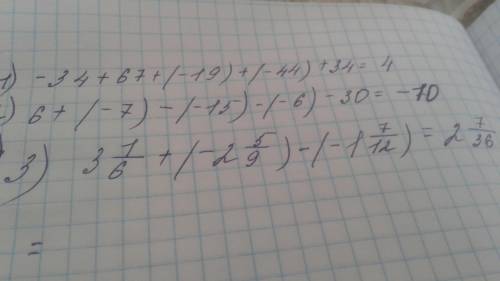 1) -34 + 67 + (-19) + (-44) + 34 = 4
) 6 + (-7) - (-15) - (-6) - 30 = -10
3) 3 1/6 + (-2 5/9) - (-1 7/12) = 2 7/36
=